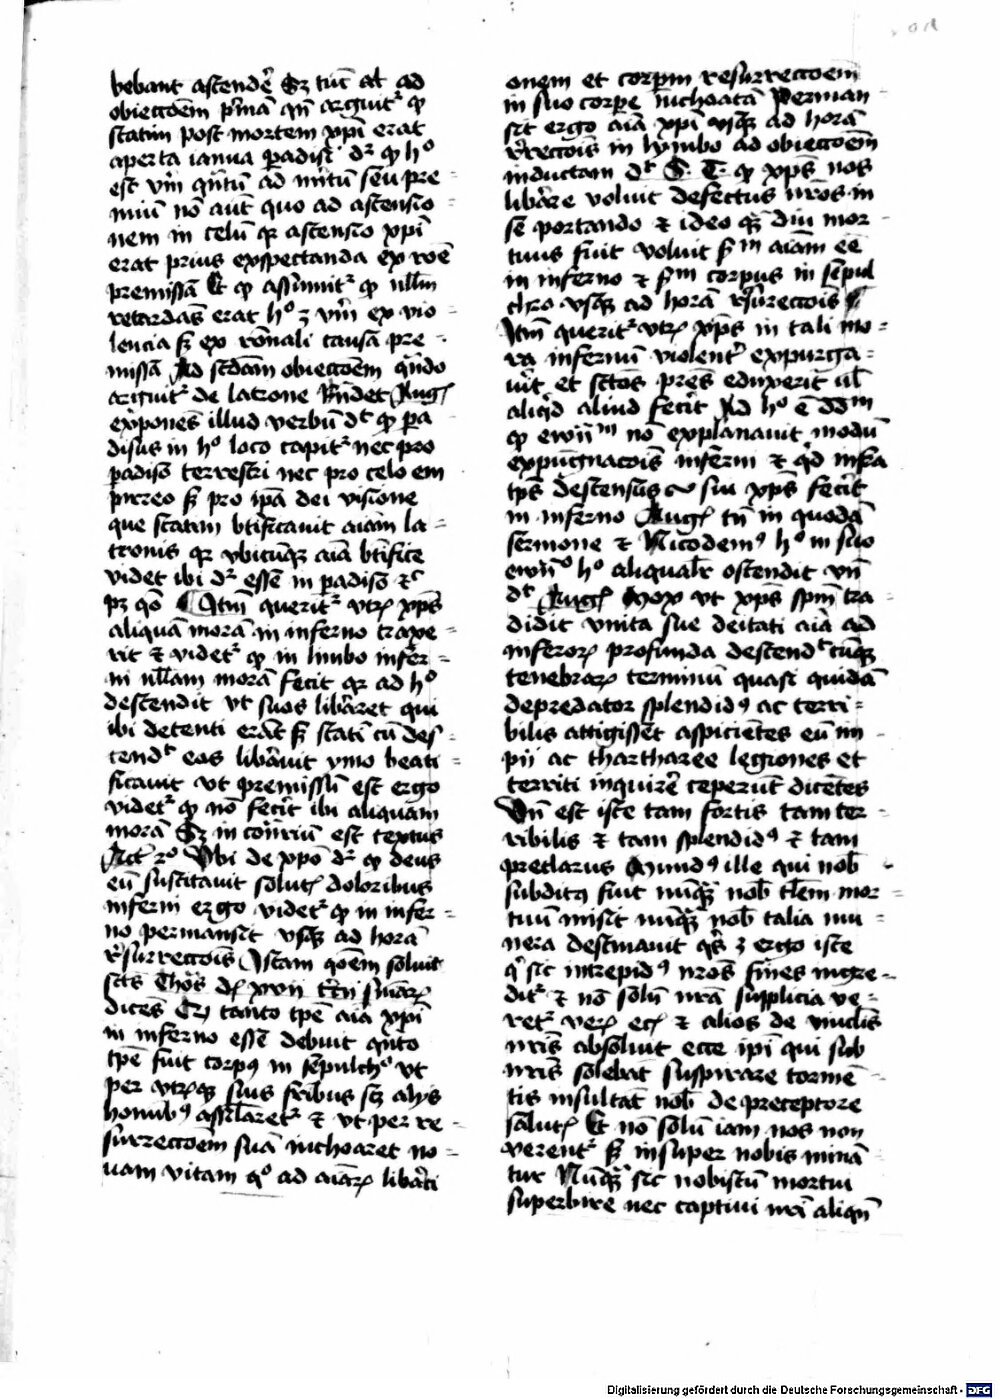 bebant ascendē Sz tūc at ad
obiectōem pͥmā qn̄ arguitᷣ ꝙ
statim post mortem xp̄i erat
aperta ianua ꝑadisi dᷣ ꝙ hͦ
est vn̄ qn̄tū ad mītū seu pre
miū nō aūt quo ad ascensio
nem in celū qꝛ ascensio xp̄i
erat prius exspectanda ex rōe
premissa Et ꝙ assumitᷣ ꝙ nll̄m
retardās erat hͦ ꝫ vm̄ ex vio
lencia sꝫ ex rōnali causa pre
missa Ad scd̄am obiectōem qn̄do
arguitᷣ de latrone Rn̄det Aug
exponēs illud verbū dt ꝙ pa
disus in hͦ loco capitᷣ nec pro
padiso terrestri nec pro celo em
pireo sꝫ pro ip̄a dei visione
que statim btīficauit aīam la
tronis qꝛ vbicūqꝫ aīa btīfice
videt ibi dᷣ esse in padiso ⁊c̄
pꝫ qō Itm̄ queritᷣ vtꝝ xp̄s
aliquā morā in inferno traxe
rit ⁊ videtᷣ ꝙ in limbo infer
ni nll̄am morā fecit qꝛ ad hͦ
descendit vt suos libaret qui
ibi detenti erāt sꝫ statī cū des
cendt eos libauit ymo beati
ficauit vt premissū est ergo
videtᷣ ꝙ nō fecit ibi aliquam
morā Sꝫ in cōtriū est textus
Act 2ͦ Vbi de xp̄o dᷣ ꝙ deus
eū suscitauit solutꝭ doloribus
inferni ergo videtᷣ ꝙ in infer
no permansit vsqꝫ ad horā
rͤsurrectōis Istam qōem soluit
scts Thōs dꝭ xvii tcn̄ sniaꝝ
dices Qꝫ tanto tpe aīa xp̄i
in inferno esse debuit qn̄to
tpe fuit corpꝰ in sepulchͦ vt
per vtꝝqꝫ suis fr̄ibus sꝫ alijs
homibꝰ assilaretᷣ ⁊ vt per re
surrectōem suā inchoaret no
uam vitam qͦ ad aīaꝝ libati
onem et corpm resurrectōem
in suo corpe inchoatā Perman
sit ergo aīa xp̄i vsqꝫ ad horā
rͤrectōis in lymbo ad obiectōem
inductam dt S. T. ꝙ xp̄s nos
libare voluit defectus nr̄os in
se portando ⁊ ideo qꝫ diu mor
tuus fuit voluit sᷤm aīam eē
in inferno ⁊ sᷤm corpus in sepul
chro vsqꝫ ad horā rͤsurectōis
Itm̄ queritᷣ vtꝝ xp̄s in tali mo
ra infernū violentͤ expurga
uit et sctōs pr̄es eduxerit vl̄
aliqͥd aliud fecit Ad hͦ ē dd̄m
ꝙ ewn̄m nō explanauit modū
expugnacōis inferni ⁊ qͥd infra
tp̄s descensus suū xp̄s fecit
in inferno Augꝭ tn̄ in quodā
sermone ⁊ Nicodemꝰ hͦ in suo
ewn̄ͦ hͦ aliqualr̄ ostendit vn̄
dt Augꝭ Mox vt xp̄s spm̄ tra
didit vnita sue deitati aīa ad
inferoꝝ profunda descendt cūqꝫ
tenebraꝝ terminū quasi quidā
depredator splendidꝰ ac terri
bilis attigisset aspicietes eū im
pii ac thartharee legiones et
territi inquirē ceperūt dicētes
Vn̄ est iste tam fortis tam ter
ribilis ⁊ tam splendidꝰ ⁊ tam
preclarus Mundꝰ ille qui nob̄
subditꝰ fuit nūqꝫ nob̄ tlēm mor
tuū misit nūqꝫ nob̄ talia mu
nera destinauit qͥs ꝫ ergo iste
qͥ sic intrepidꝰ nr̄os fines ingre
ditᷣ ⁊ nō solū nr̄a supplicia ve
retᷣ veꝝ ecꝭ ⁊ alios de vinclis
nr̄is absoluit ecce ip̄i qui sub
nr̄is solebāt suspirare tormē
tis insultāt nob̄ de preceptore
salutꝭ Et nō solū iam nos non
verentᷣ sꝫ insuper nobis minā
tur Nūqꝫ sic nobiscū mortui
superbire nec captiui nr̄i aliqn̄
Digitalisierung gefördert durch die Deutsche Forschungsgemeinschaft - DFG